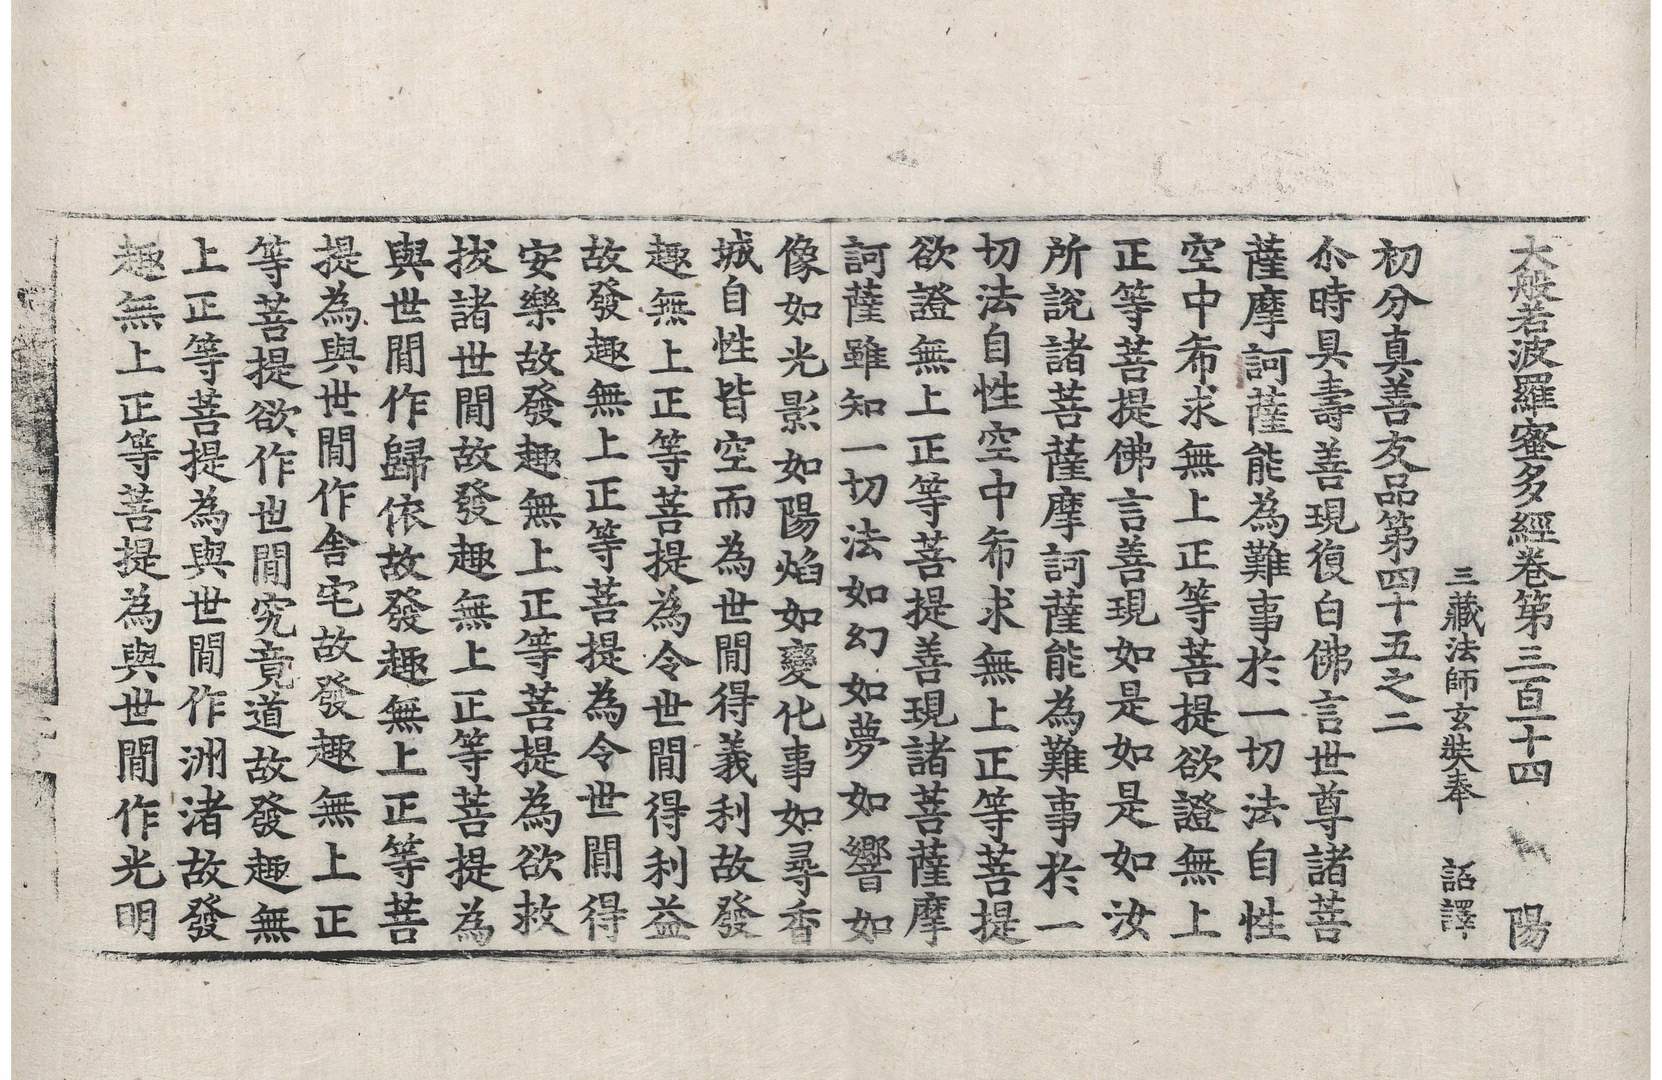 大般若波羅蜜多經卷第三百一十四　陽
三藏法師玄奘奉　詔譯
初分真善友品第四十五之二
尒時具壽善現復白佛言世尊諸菩
薩摩訶薩能為難事於一切法自性
空中希求無上正等菩提欲證無上
正等菩提佛言善現如是如是如汝
所說諸菩薩摩訶薩能為難事於一
切法自性空中希求無上正等菩提
欲證無上正等菩提善現諸菩薩摩
訶薩雖知一切法如幻如夢如響如
像如光影如陽焰如變化事如尋香
城自性皆空而為世間得義利故發
趣無上正等菩提為令世間得利益
故發趣無上正等菩提為令世間得
安樂故發趣無上正等菩提為欲救
拔諸世間故發趣無上正等菩提為
與世間作歸依故發趣無上正等菩
提為與世間作舍宅故發趣無上正
等菩提欲作世間究竟道故發趣無
上正等菩提為與世間作洲渚故發
趣無上正等菩提為與世間作光明